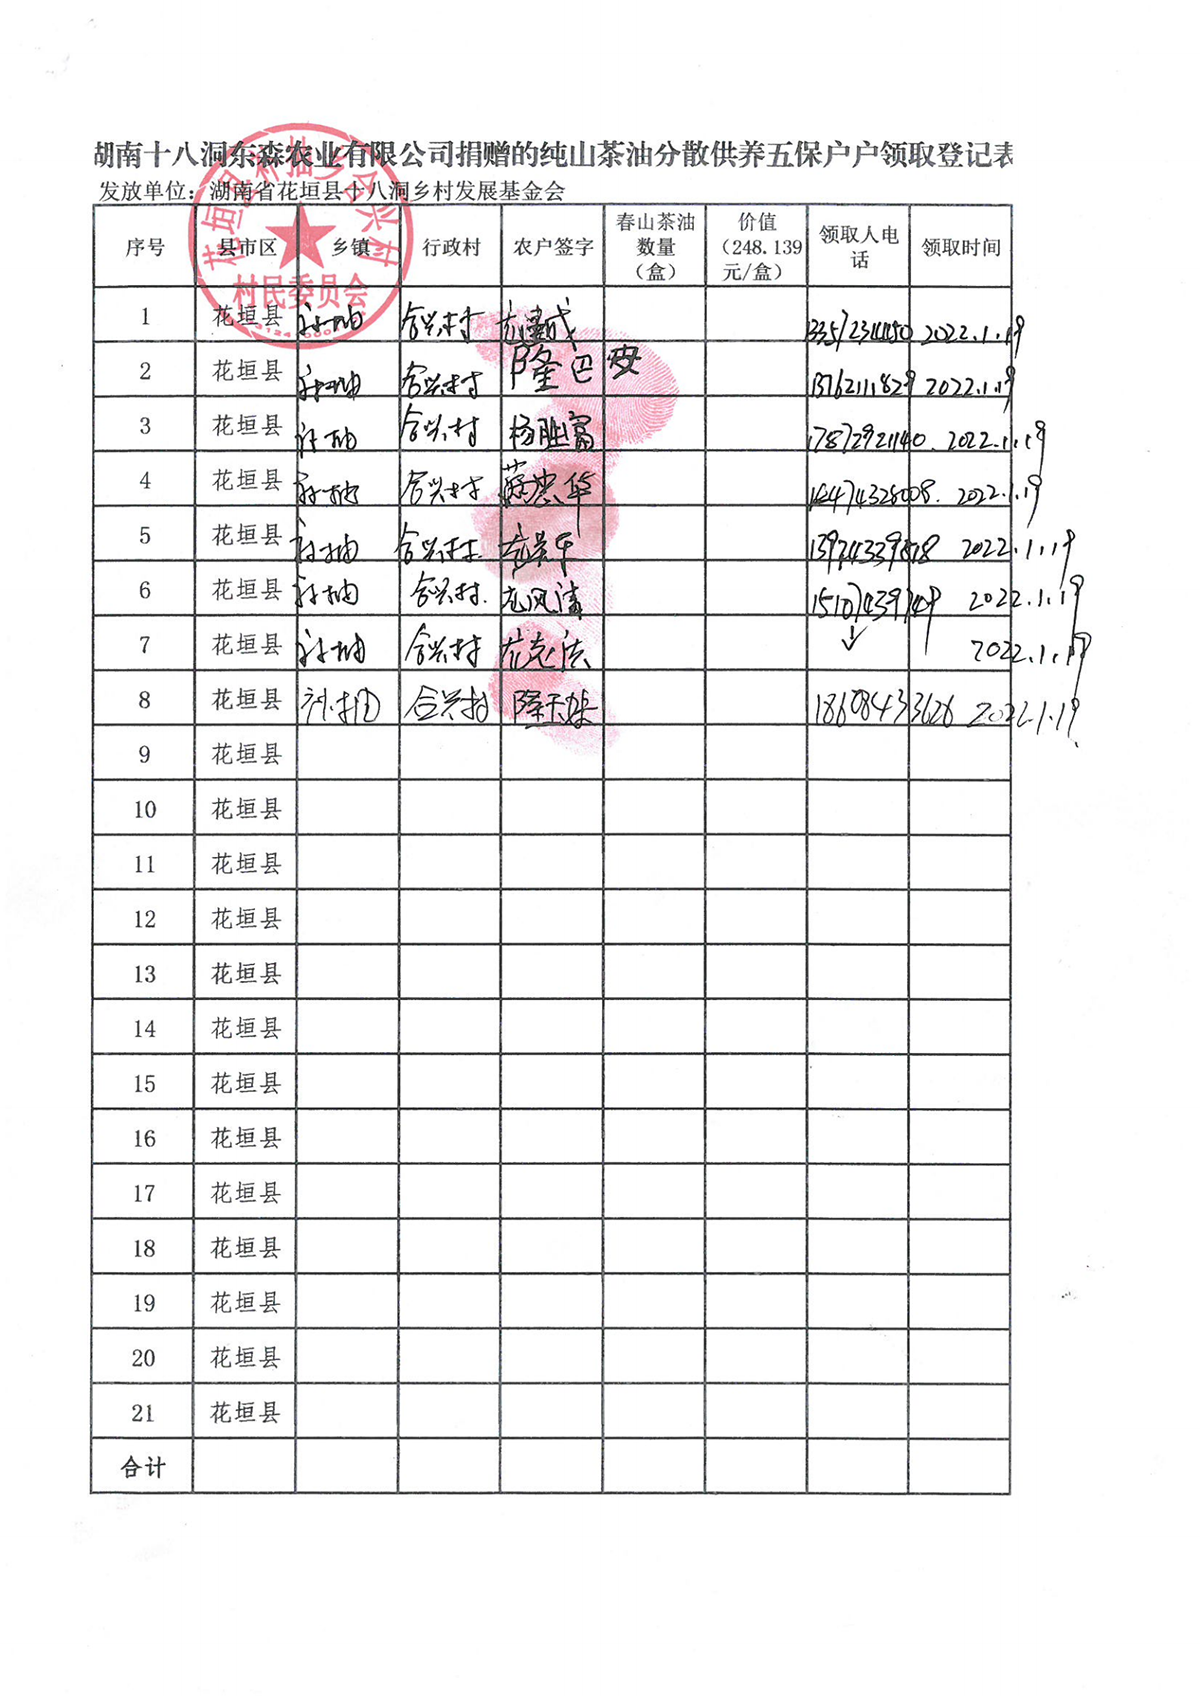 湖南十八洞东森农业有限公司捐赠的纯山茶油分散供养五保户户领取登记表
发放单位：湖南省花垣县十八洞乡村发展基金会
花垣县补抽乡合兴村
村民委员会
序号 县市区 乡镇 行政村 农户签字 春山茶油数量（盒） 价值（248.139元/盒） 领取人电话 领取时间
1 花垣县 补抽 合兴村 2022.1.19
2 花垣县 补抽 合兴村 隆巴安 13762111829 2022.1.19
3 花垣县 补抽 合兴村 杨胜富 17872921140. 2022.1.19
4 花垣县 补抽 合兴村 2022.1.19
5 花垣县 补抽 合兴村. 2022.1.19
6 花垣县 补抽 合兴村. 龙凤清 2022.1.19
7 花垣县 补抽 合兴村 2022.1.19
8 花垣县 补抽 合兴村 18608433626 2022.1.19
9 花垣县
10 花垣县
11 花垣县
12 花垣县
13 花垣县
14 花垣县
15 花垣县
16 花垣县
17 花垣县
18 花垣县
19 花垣县
20 花垣县
21 花垣县
合计